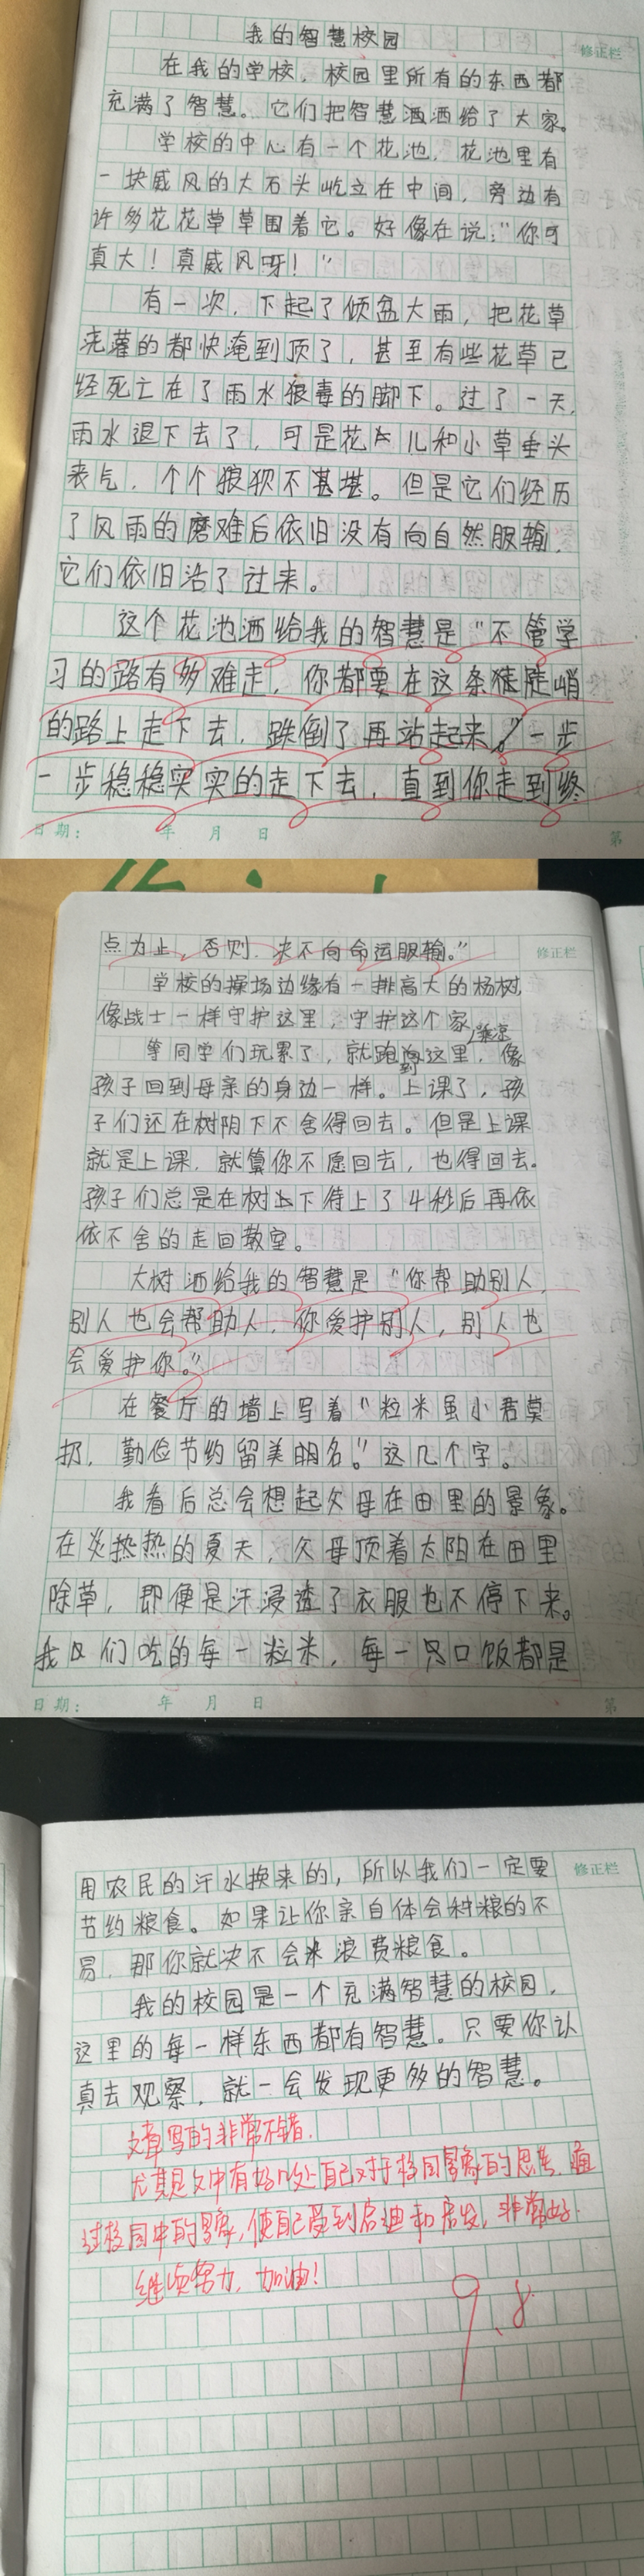 我的智慧校园
修正栏
在我的学校，校园里所有的东西都
充满了智慧。它们把智慧洒洒给了大家。
学校的中心有一个花池，花池里有
一块威风的大石头屹立在中间，旁边有
许多花花草草围着它。好像在说："你可
真大！真威风呀！"
有一次，下起了倾盆大雨，把花草
浇灌的都快淹到顶了，甚至有些花草已
经死亡在了雨水狠毒的脚下。过了一天，
雨水退下去了，可是花儿和小草垂头
丧气，个个狼狈不甚堪。但是它们经历
了风雨的磨难后依旧没有向自然服输，
它们依旧活了过来。
这个花池洒给我的智慧是"不管学
习的路有多难走，你都要在这条陡峭
的路上走下去，跌倒了再站起来，一步
一步稳稳实实的走下去，直到你走到终
日期： 年 月 日
第
点为止，否则，决不向命运服输。"
修正栏
学校的操场边缘有一排高大的杨树，
像战士一样守护这里，守护这个家
等同学们玩累了，就跑到这里乘凉，像
孩子回到母亲的身边一样。上课了，孩
子们还在树阴下不舍得回去。但是上课
就是上课，就算你不愿回去，也得回去。
孩子们总是在树下待上了4秒后再依
依不舍的走回教室。
大树洒给我的智慧是"你帮助别人，
别人也会帮助人，你爱护别人，别人也
会爱护你。"
在餐厅的墙上写着"粒米虽小君莫
扔，勤俭节约留美名。"这几个字。
我看后总会想起父母在田里的景象。
在炎热热的夏天，父母顶着太阳在田里
除草，即便是汗浸透了衣服也不停下来。
我们吃的每一粒米，每一口饭都是
日期： 年 月 日
第
用农民的汗水换来的，所以我们一定要
修正栏
节约粮食。如果让你亲自体会种粮的不
易，那你就决不会浪费粮食。
我的校园是一个充满智慧的校园，
这里的每一样东西都有智慧。只要你认
真去观察，就一会发现更多的智慧。
文章写的非常不错，
尤其是文中有好几处自己对于校园景象的思考，通
过校园中的景象，使自己受到启迪和启发，非常好
继续努力，加油！
9.8